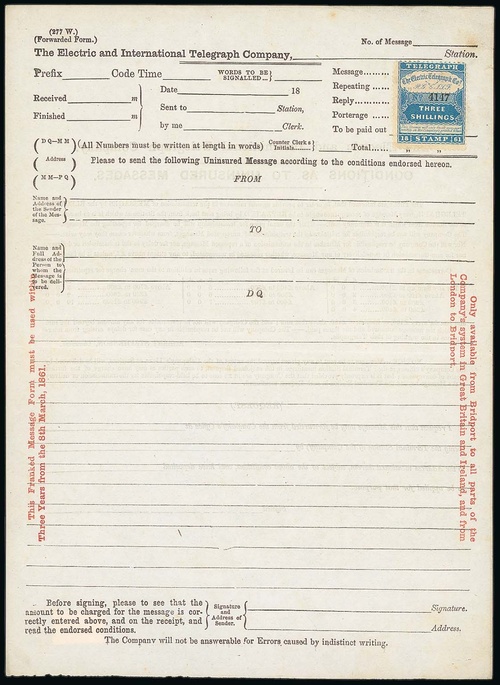 (277 W.)
(Forwarded Form.)
No. of Message
The Electric and International Telegraph Company, Station.
Prefix Code Time WORDS TO BE SIGNALLED... Message.......
Repeating ......
Reply.........
Porterage ...
To be paid out
Total......
Received m
Finished m
Date 18
Sent to Station,
by me Clerk.
TELEGRAPH
The Electric Telegraph Co.
4147
THREE
SHILLINGS
18 STAMP 61
(DQ-MM)
(Address)
(MM-PQ)
(All Numbers must be written at length in words)
Counter Clerk's Initials......
Please to send the following Uninsured Message according to the conditions endorsed hereon.
FROM
Name and
Address of
the Sender
of the Mes-
sage.
TO
Name and
Full Ad-
dress of the
Person to
whom the
Message is
to be deli-
vered.
D Q
This Franked Message Form must be used within
Three Years from the 8th March, 1861.
Only available from Bridport to all parts of the
Company's system in Great Britain and Ireland, and from
London to Bridport.
Before signing, please to see that the
amount to be charged for the message is cor-
rectly entered above, and on the receipt, and
read the endorsed conditions.
Signature
and
Address of
Sender.
Signature.
Address.
The Company will not be answerable for Errors caused by indistinct writing.